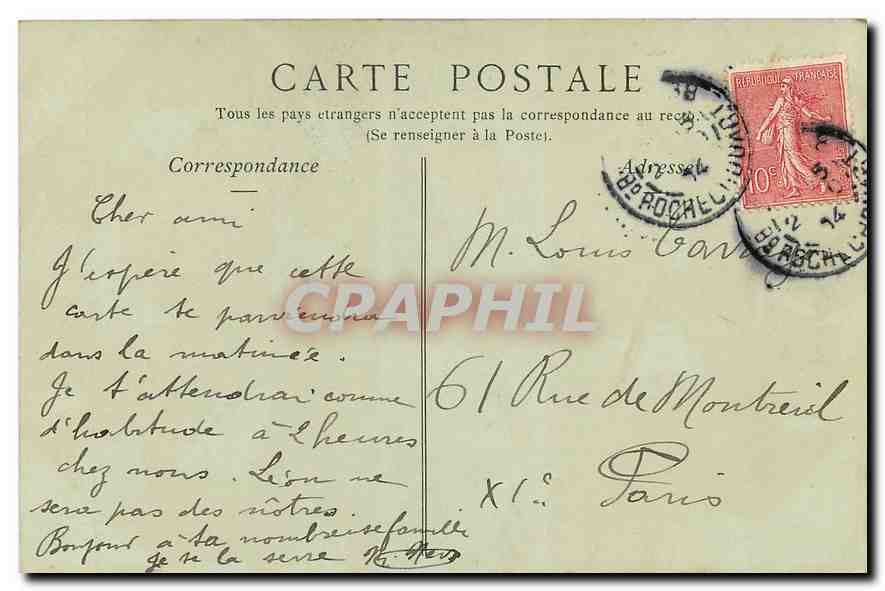 CARTE POSTALE
Tous les pays etrangers n'acceptent pas la correspondance au recto.
(Se renseigner à la Poste).
Correspondance
Adresse
RÉPUBLIQUE FRANÇAISE
10c
Bd ROCHECHOUART
Bd ROCHECHOUART
Cher ami
J'espère que cette
carte te parviendra
dans la matinée.
Je t'attendrai comme
d'habitude à 2 heures
chez nous. Léon ne
sera pas des nôtres.
Bonjour à ta nombreuse famille
je te la serre
M. Louis
61 Rue de Montreuil
XIe Paris
CPARAPHIL